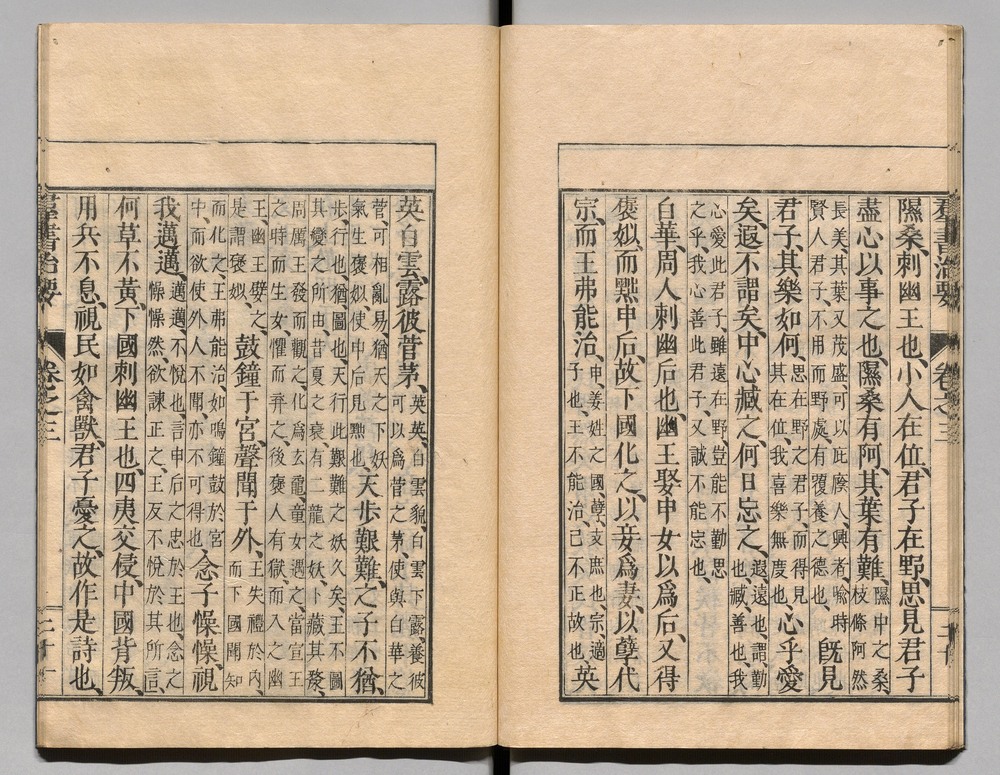 羣書治要 卷之三 二十
隰桑、刺幽王也、小人在位、君子在野、思見君子
盡心以事之也、隰桑有阿、其葉有難、隰中之桑、枝條阿然
長美、其葉又茂盛、可以庇廕人、興者、喩時賢人君子、不用而野處、有覆養之德也、旣見
君子、其樂如何、思在野之君子、而得見其在位、我喜樂無度也、心乎愛
矣、遐不謂矣、中心臧之、何日忘之、遐、遠也、謂、勤也、臧、善也、我
心愛此君子、雖遠在野、豈能不勤思之乎、我心善此君子、又誠不能忘也、
白華、周人刺幽后也、幽王娶申女以爲后、又得
襃姒、而黜申后、故下國化之、以妾爲妻、以孽代
宗、而王弗能治、申、姜姓之國、孽、支庶也、宗、適子也、王不能治、己不正故也、英
英白雲、露彼菅茅、英英、白雲貌、白雲下露、養彼可以爲菅之茅、使與白華之
菅、可相亂易、猶天之下妖氣生襃姒、使申后見黜也、天步艱難、之子不猶、
步、行也、猶、圖也、天行此艱難之妖久矣、王不圖其變之所由、昔夏之衰、有二龍之妖、卜藏其漦、
周厲王發而觀之、化爲玄黿、童女遇之、當宣王之時而生女、懼而弃之、後襃人有獄、而入之幽
王、幽王嬖之、是謂襃姒、鼓鐘于宮、聲聞于外、王失禮於内、而下國聞知
而化之、王弗能治、如鳴鐘鼓於宮中、而欲使外人不聞、亦不可得也、念子懆懆、視
我邁邁、邁邁、不悅也、言申后之忠於王也、念之懆懆然、欲諫正之、王反不悅於其所言、
何草不黃、下國刺幽王也、四夷交侵、中國背叛、
用兵不息、視民如禽獸、君子憂之、故作是詩也、
羣書治要 卷之三 二十一